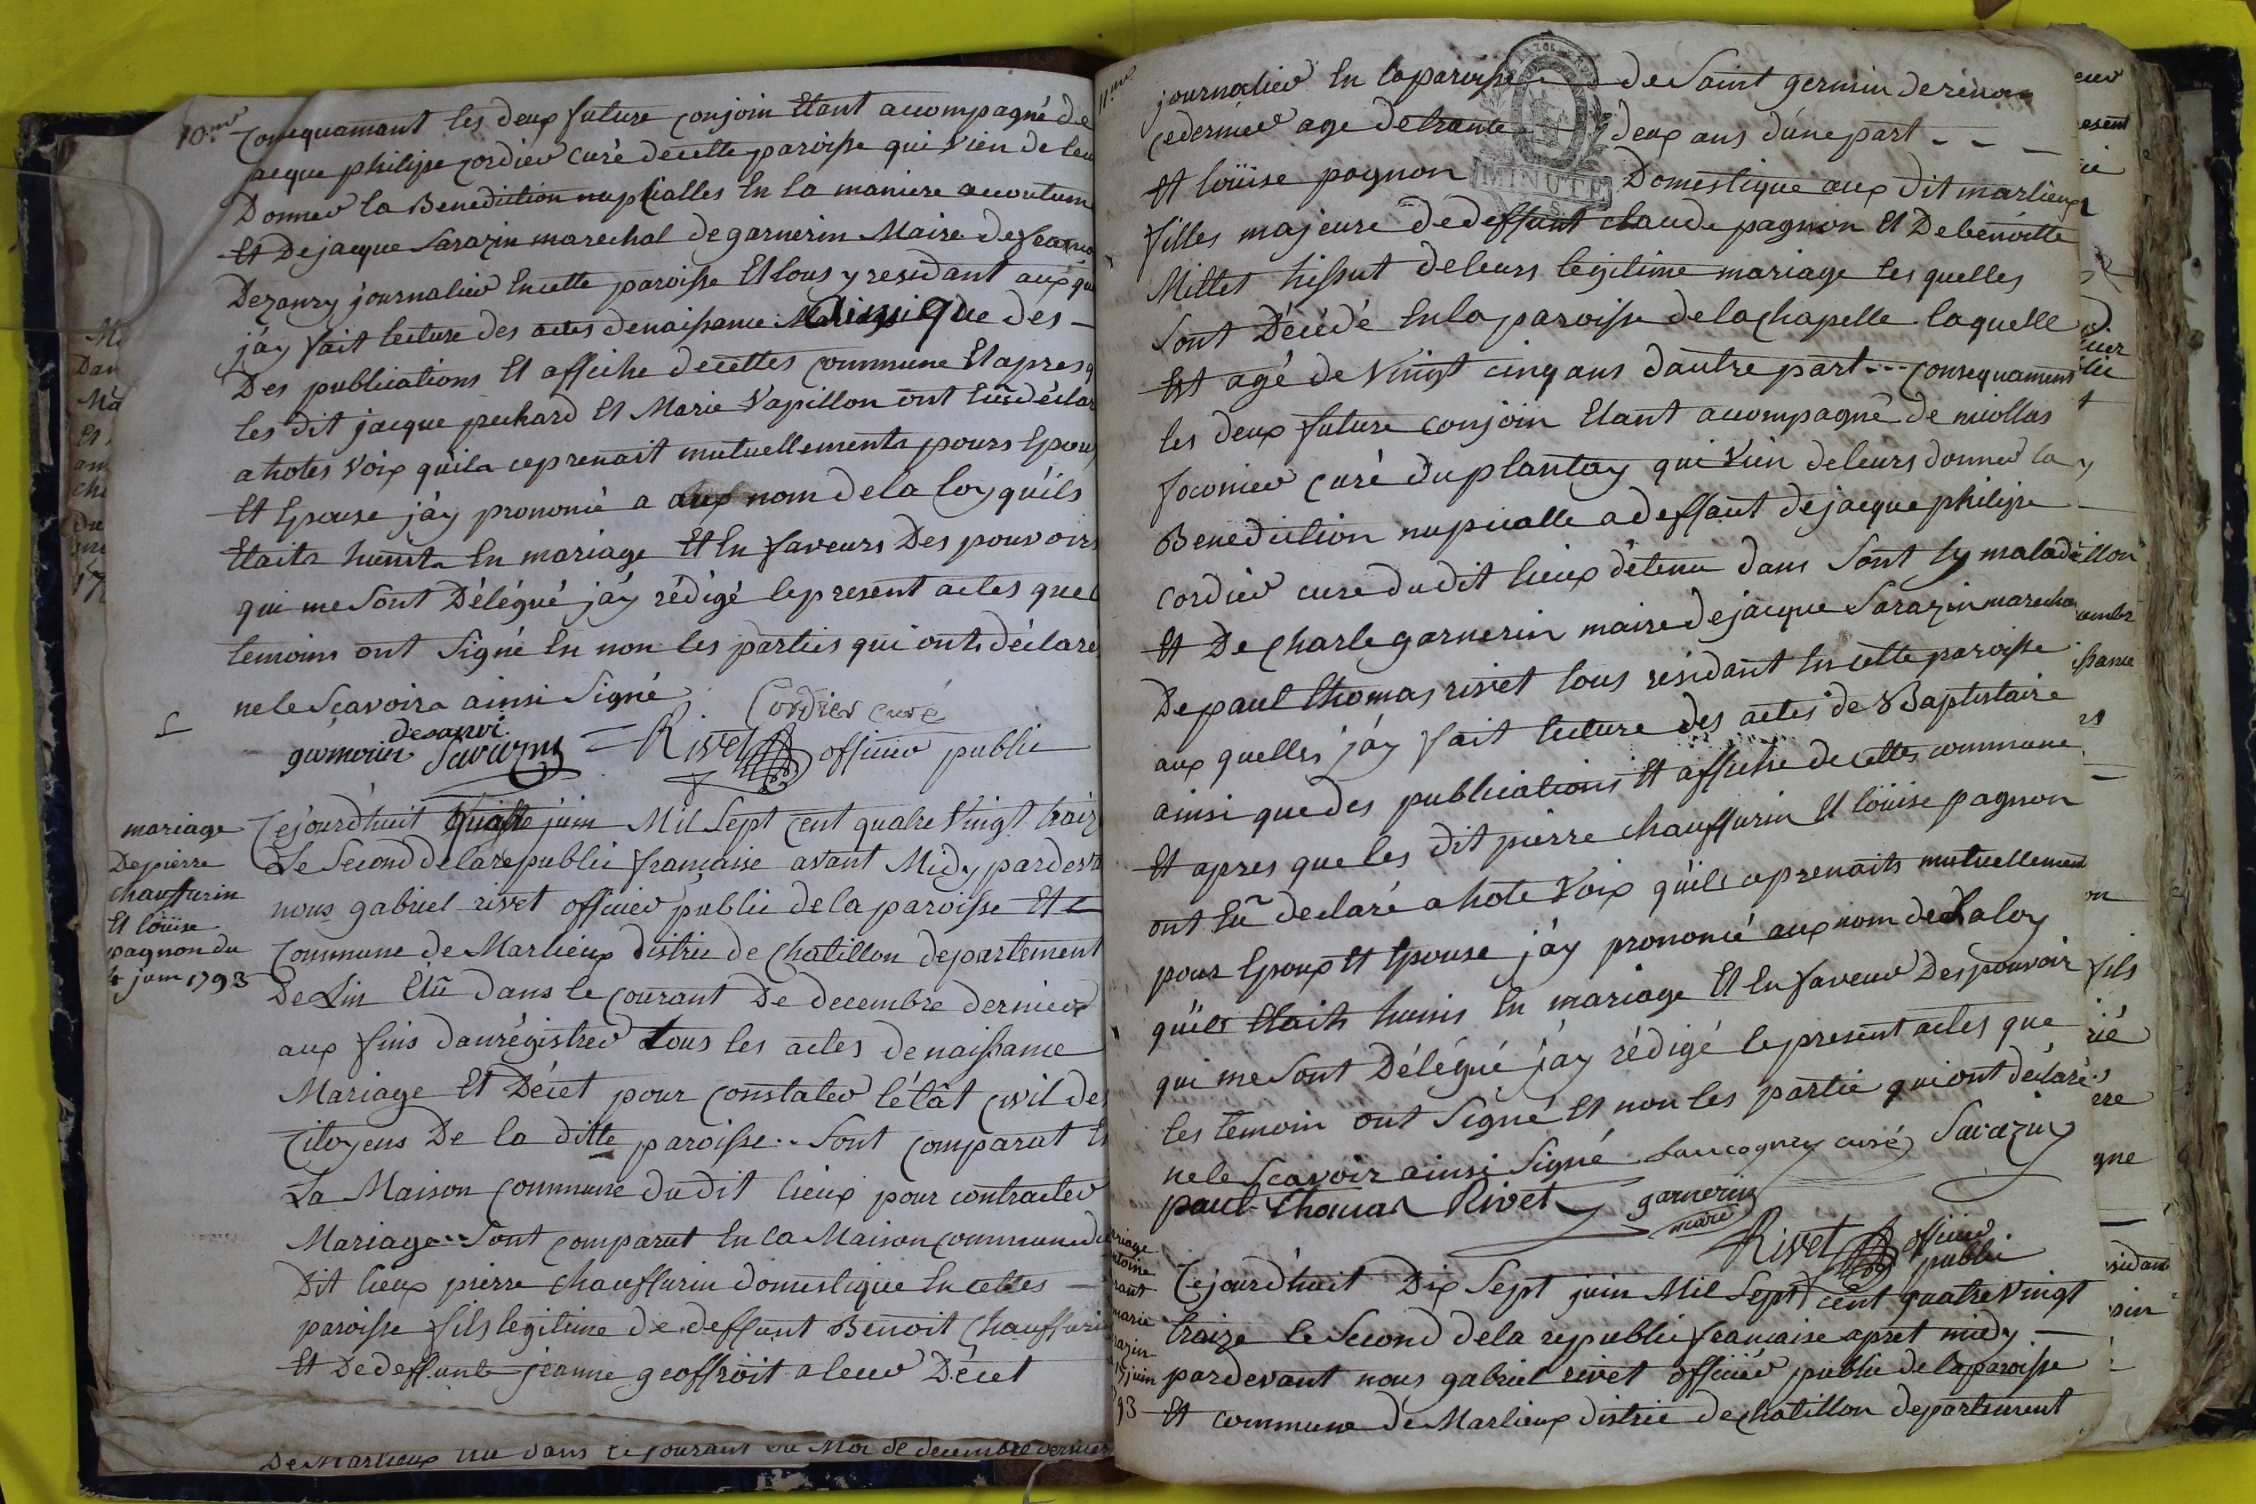 10.me
Consequamant les deux future conjoin Etant acompagné de
jacque philipe cordier curé decette paroisse qui vien de leu
Donner la Benediction nuptialles En la maniere acoutume
Et De jacque Sarazin marechal de garnerin Maire de
Dezanvy journalier Encette paroisse Et tous y residant aux qu
j'ay fait lecture des actes denaissance ainsi que des
Des publications Et affiche decettes commune Et apres q
les dit jacque pechard Et Marie Vapillon ont Eus déclar
ahotes voix quila ceprenait mutuellements pours Epou
Et Epouse j'ay prononcé a aux nom dela loy qu'ils
Etaits hunits En mariage Et En faveurs Des pouvoirs
qui me Sont Délégué j'ay rédigé lepresent actes que l
temoins ont Signé En non les parties qui onts déclare
nele Sçavoira ainsi Signé
Cordier curé
desanvi
garnerin Sarazin Rivet officier public
mariage
Depierre
chauffurin
Et loüise
pagnon du
4 juin 1793
Cejourd'huit quatre juin Mil Sept Cent quatre Vingt traiz
Le Second delarepublic francaise avant Midy pardeva
nous gabriel rivet officier public de la paroisse Et
Commune de Marlieux distric de Chatillon departement
De Lin Elû dans le Courant De decembre dernier
aux fins danrégistrer tous les actes denaissance
Mariage Et Décet pour Constater l'état civil des
Citoyens De la ditte paroisse .. Sont comparut En
La Maison Commune dudit lieux pour contracter
Mariage .. Sont comparut En la Maison commune du
Dit lieux pierre chauffurin domestique En cettes
paroisse fils legitime de deffunt Benoit Chauffurin
Et Dedeffunte jeanne geoffroit a leur Décet
De Marlieux Elu dans le Courant du Moi de decembre dernier
11.me
journalier En la paroisse de Saint germin de renon
cedernier age de trante deux ans dúnepart - - -
Et loüise pagnon Domestique aux Dit marlieux
MINUTE
filles majeure dedeffunt claude pagnon Et De benoitte
Millet hissut deleurs legitime mariage les quelles
Sont Décédé En la paroisse delachapelle laquelle
Est agé de Vingt cinq ans dautre part - - - consequamens
les deux future conjoin Etant acompagné de nicollas
foconier Curé duplantay qui vien deleurs donner la
Benediction nupcialle adeffaut dejacque philipe
cordier cure dudit lieux détenu dans Sont ly malade
Et De charle garnerin maire dejacque Sarazin marechal
Depaul thomas rivet tous residant En cette paroisse
aux quelles j'ay fait lecture des actes de Baptistaire
ainsi que des publications Et affiche de cettes commune
Et apres que les dit pierre chauffurin Et loüise pagnon
ont Eû declaré ahote Voix quils aprenaits mutuellement
pour Epoux Et Epouse j'ay prononcé aux nom de La loy
qu'ils Etaits hunis En mariage Et En faveur Des pouvoir
qui me Sont Délégué j'ay rédigé lepresent actes que
les temoin ont Signé Et non les partie qui ont déclaré
nele Sçavoir ainsi Signé curé Sarazin
paul thomas Rivet garnerin
maire
Rivet officier
public
Cejourd'huit Dix Sept juin Mil Sept Cent quatre Vingt
traize le Second dela republic francaise apret midy
pardevant nous gabriel rivet officier public de laparoisse
Et commune de Marlieux distric de chatillon departement